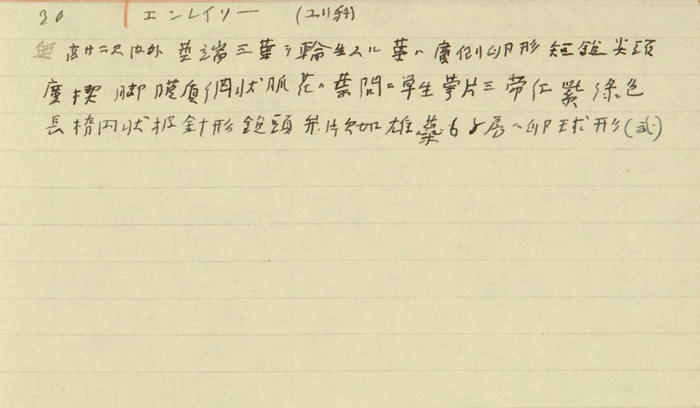 20 エンレイソー (ユリ科)
高サ二尺内外 莖端三葉ヲ輪生スル 葉ハ廣倒卵形 短鋭尖頭
廣楔脚膜質網状脈 花ハ葉間ニ単生萼片三帯仁紫綠色
長楕円状披針形鋭頭 弁片欠如 雄蘂6 子房ハ卵球形(武)